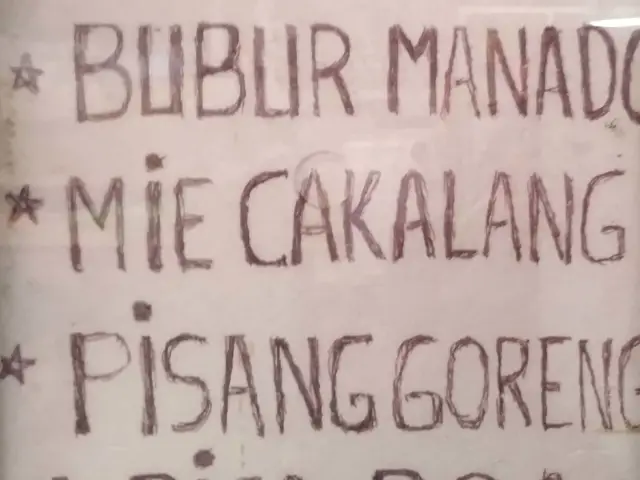 BUBUR MANADO
MiE CAKALANG
PiSANG GORENG